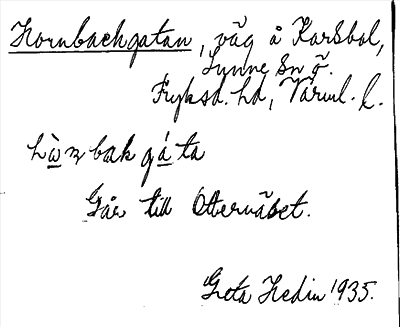 Hornbackgatan, väg å Karsbol,
Lysvik sn ö.
Fryksd. hd, Värml. l.
hὰɳbakgáta
Går till Ottervätet.
Greta Hedin 1935.